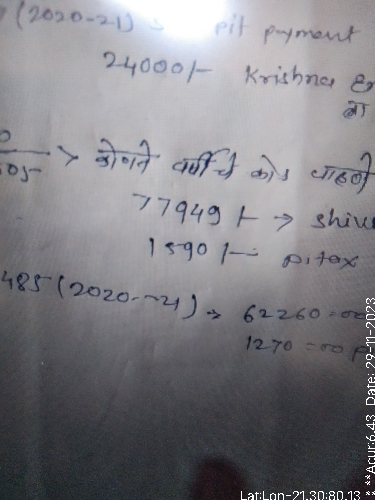 (2020-21) pit pyment
24000/- Krishna
कोणते वर्षाचे कोड पाहणे
77949/- → Shiv
1590/-
485 (2020-21) → 62260=00
1270=00 P
Lat:Lon-21.30:80.13 * **Acur:6.43 Date: 29-11-2023